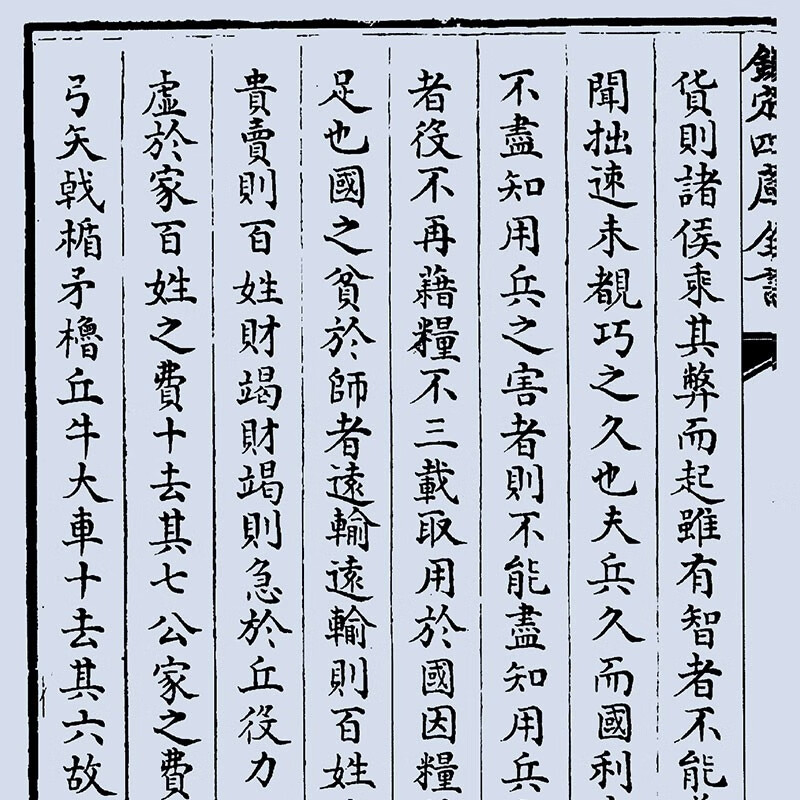 欽定四庫全書
貨則諸侯乘其弊而起雖有智者不能
聞拙速未覩巧之久也夫兵久而國利
不盡知用兵之害者則不能盡知用兵
者役不再藉糧不三載取用於國因糧
足也國之貧於師者遠輸遠輸則百姓
貴賣則百姓財竭財竭則急於丘役力
虛於家百姓之費十去其七公家之費
弓矢戟楯矛櫓丘牛大車十去其六故